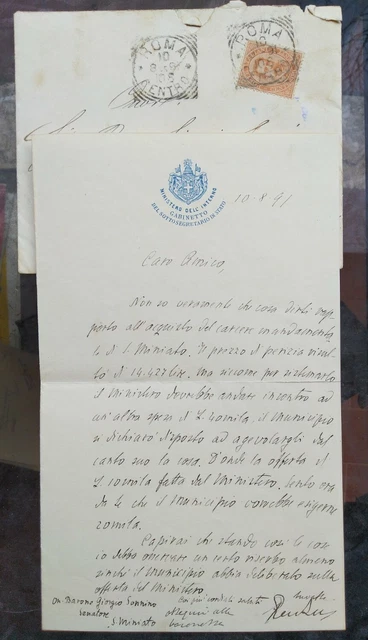 ROMA
10
CENTRO
ROMA
10
MINISTERO DELL'INTERNO
GABINETTO
DEL SOTTO SEGRETARIO DI STATO
10-8-91
Caro Amico,
Non so veramente che cosa dirti rap
porto all'acquisto del carcere mandamenta
le di S. Miniato. Il prezzo di perizia risul
tò di 14.427 lire. Ma siccome per sistemarlo
il Ministero dovrebbe andare incontro ad
un'altra spesa di L. 20mila, il Municipio
si dichiarò disposto ad agevolargli dal
canto suo la cosa. D'onde la offerta di
L. 20mila fatta dal Ministero. Sento ora
da te che il Municipio vorrebbe esigerne
20mila.
Capirai che stando così le cose
io debba osservare un certo riserbo almeno
finché il Municipio abbia deliberato sulla
offerta del Ministero.
On. Barone Giorgio Sonnino
Senatore
S. Miniato
Coi più cordiali saluti
ossequi alla
baronessa